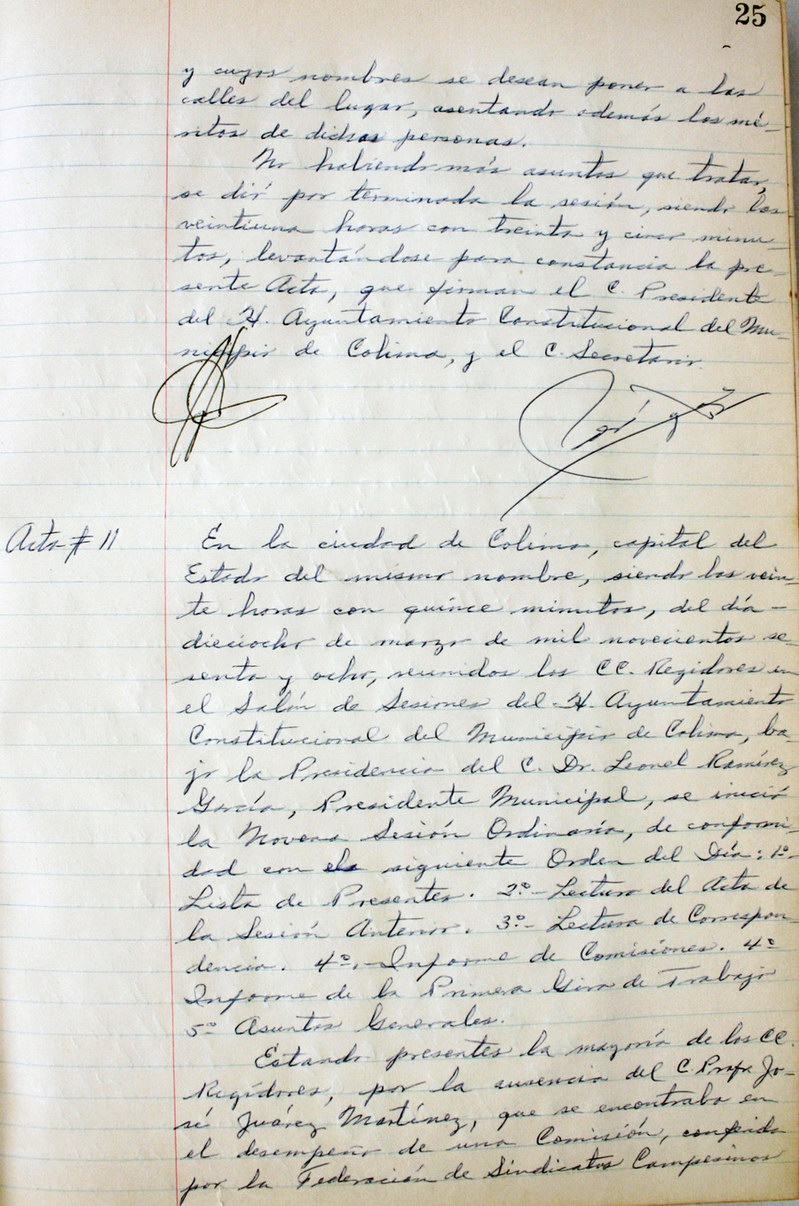 25
y cuyos nombres se desean poner a las
calles del lugar, asentando además los mé-
ritos de dichas personas.
No habiendo más asuntos que tratar,
se dió por terminada la sesión, siendo las
veintiuna horas con treinta y cinco minu-
tos, levantándose para constancia la pre-
sente Acta, que firman el C. Presidente
del H. Ayuntamiento Constitucional del Mu-
nicipio de Colima, y el C. Secretario.
Acta # 11
En la ciudad de Colima, capital del
Estado del mismo nombre, siendo las vein-
te horas con quince minutos, del día -
dieciocho de marzo de mil novecientos se-
senta y ocho, reunidos los CC. Regidores en
el Salón de Sesiones del H. Ayuntamiento
Constitucional del Municipio de Colima, ba-
jo la Presidencia del C. Dr. Leonel Ramírez
García, Presidente Municipal, se inició
la Novena Sesión Ordinaria, de conformi-
dad con el siguiente Orden del Día: 1º-
Lista de Presentes. 2º- Lectura del Acta de
la Sesión Anterior. 3º- Lectura de Correspon-
dencia. 4º.- Informe de Comisiones. 4º
Informe de la Primera Gira de Trabajo
5º Asuntos Generales.
Estando presentes la mayoría de los CC.
Regidores, por la ausencia del C. Profr. Jo-
sé Juárez Martínez, que se encontraba en
el desempeño de una Comisión, conferida
por la Federación de Sindicatos Campesinos